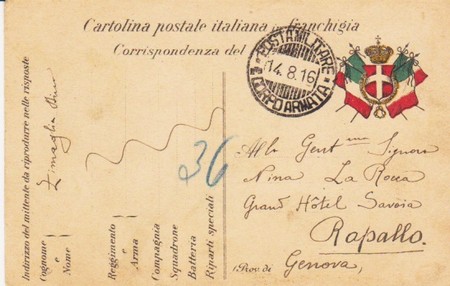 Cartolina postale italiana in franchigia
Corrispondenza del
POSTA MILITARE
14.8.16
CORPO ARMATA
Indirizzo del mittente da riprodurre nelle risposte
Cognome
e
Nome
Reggimento
e
Arma
Compagnia
Squadrone
Batteria
Riparti speciali
36
Alla Gentma Signora
Nina La Rocca
Grand Hôtel Savoia
Rapallo.
(Prov. di Genova)